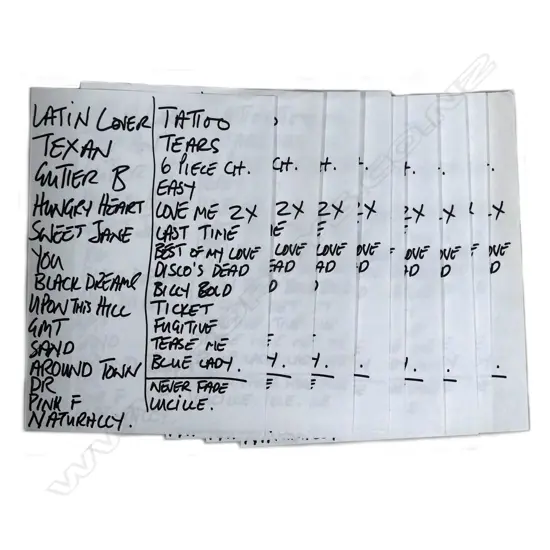 LATIN LOVER
TEXAN
GUTTER B
HUNGRY HEART
SWEET JANE
YOU
BLACK DREAMS
UPON THIS HILL
GMT
SAND
AROUND TOWN
DR
PINK F
NATURALLY.
TATTOO
TEARS
6 PIECE CH.
EASY
LOVE ME 2X
LAST TIME
BEST OF MY LOVE
DISCO'S DEAD
BILLY BOLD
TICKET
FUGITIVE
TEASE ME
BLUE LADY.
NEVER FADE
LUCILLE.